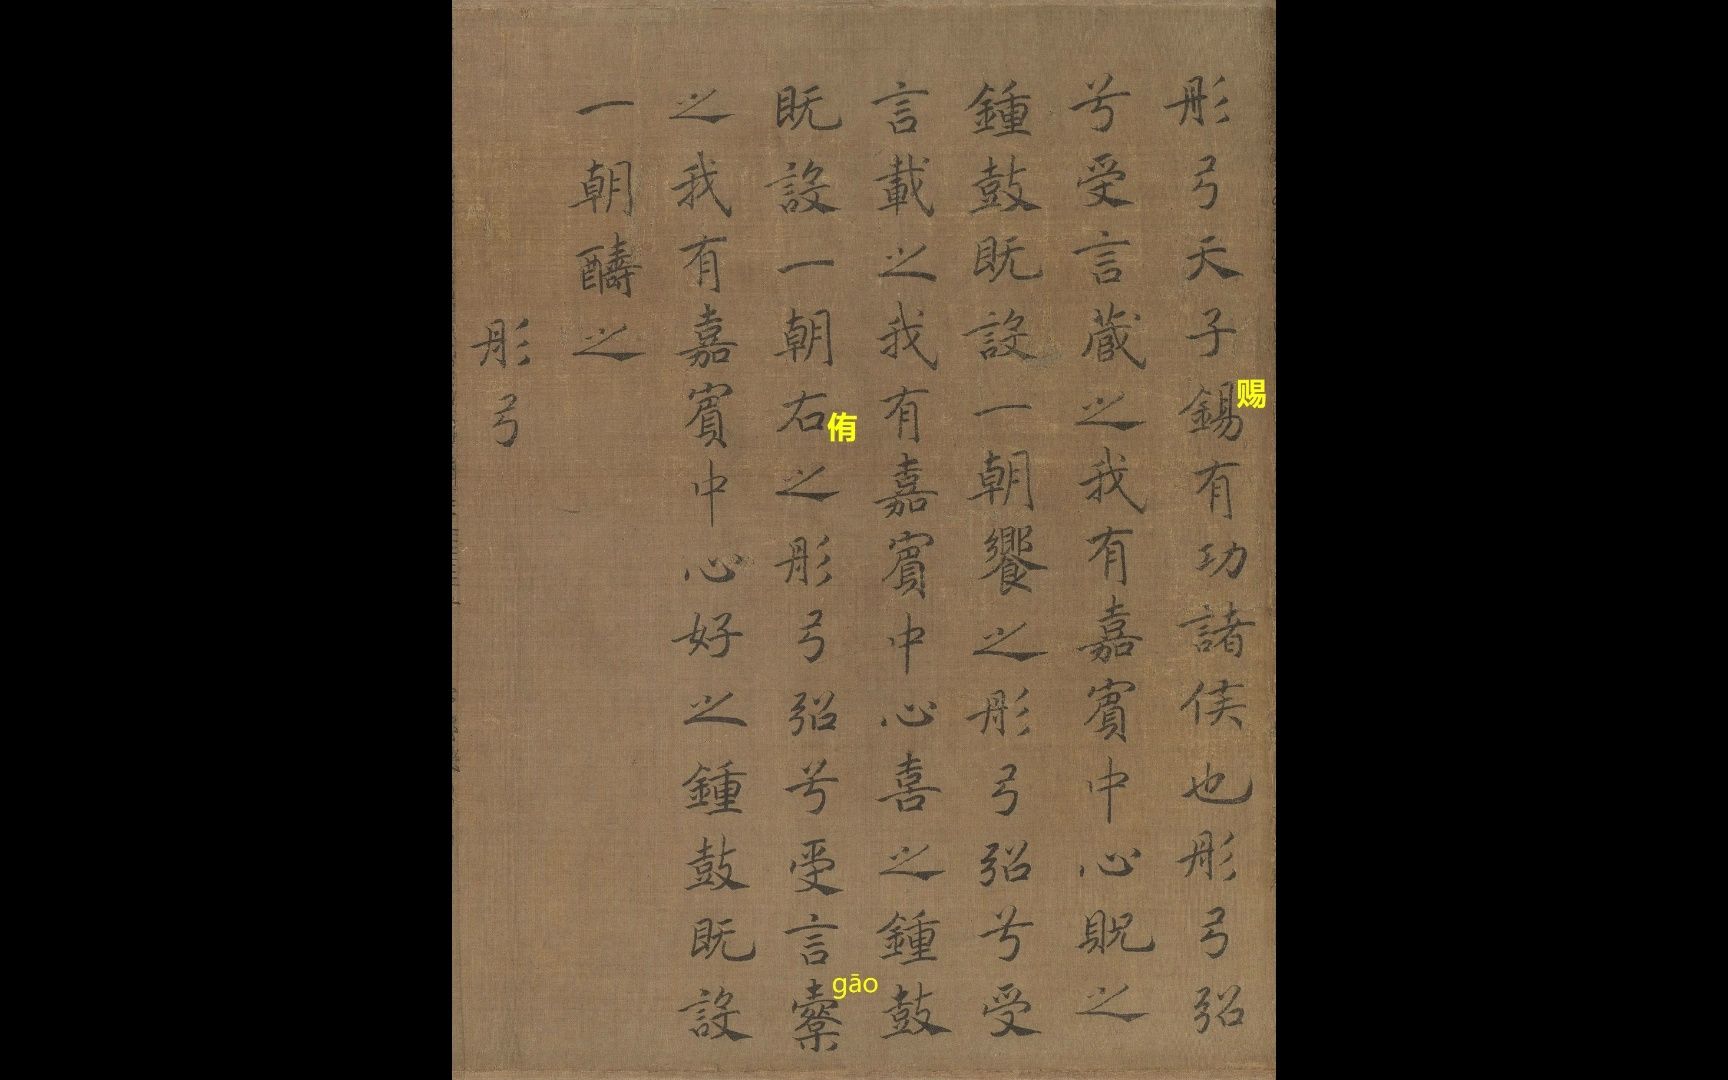 彤弓天子錫有功諸侯也彤弓弨
赐
兮受言藏之我有嘉賓中心貺之
鍾鼓既設一朝饗之彤弓弨兮受
言載之我有嘉賓中心喜之鍾鼓
既設一朝右之彤弓弨兮受言櫜
侑
gāo
之我有嘉賓中心好之鍾鼓既設
一朝醻之
彤弓